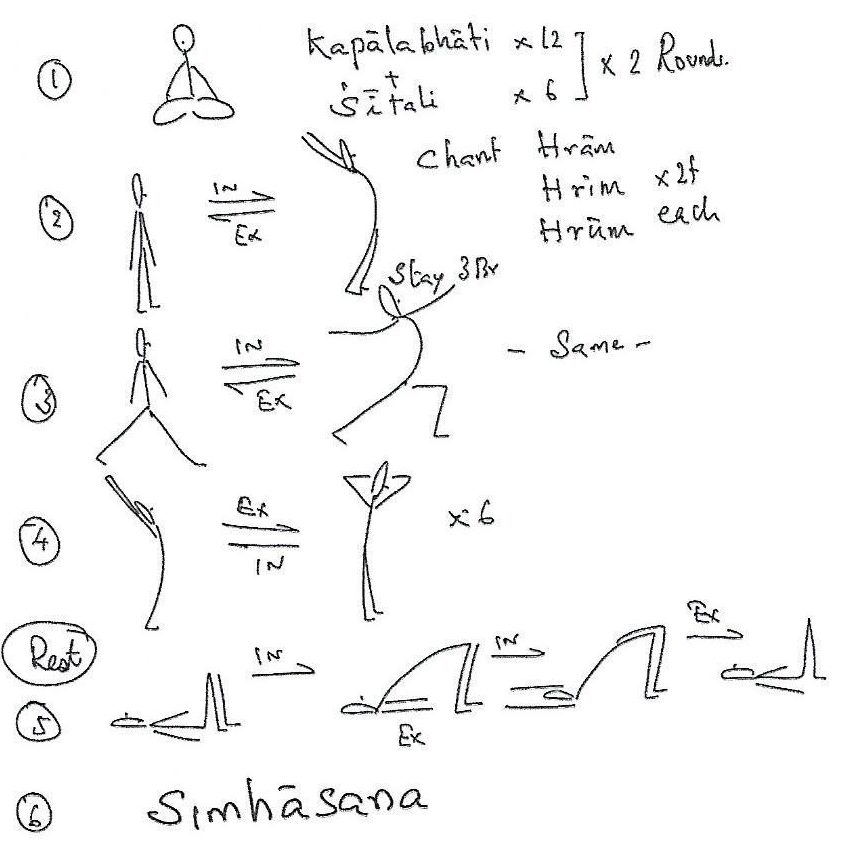 ① Kapālabhāti x 12
+ ] x 2 Rounds.
Śītali x 6
Chant Hrām
② IN Hrim x 2t
Ex Hrūm each
Stay 3Br
③ IN - Same -
Ex
④ Ex x 6
IN
Rest
IN IN Ex
⑤ Ex
⑥ Simhāsana